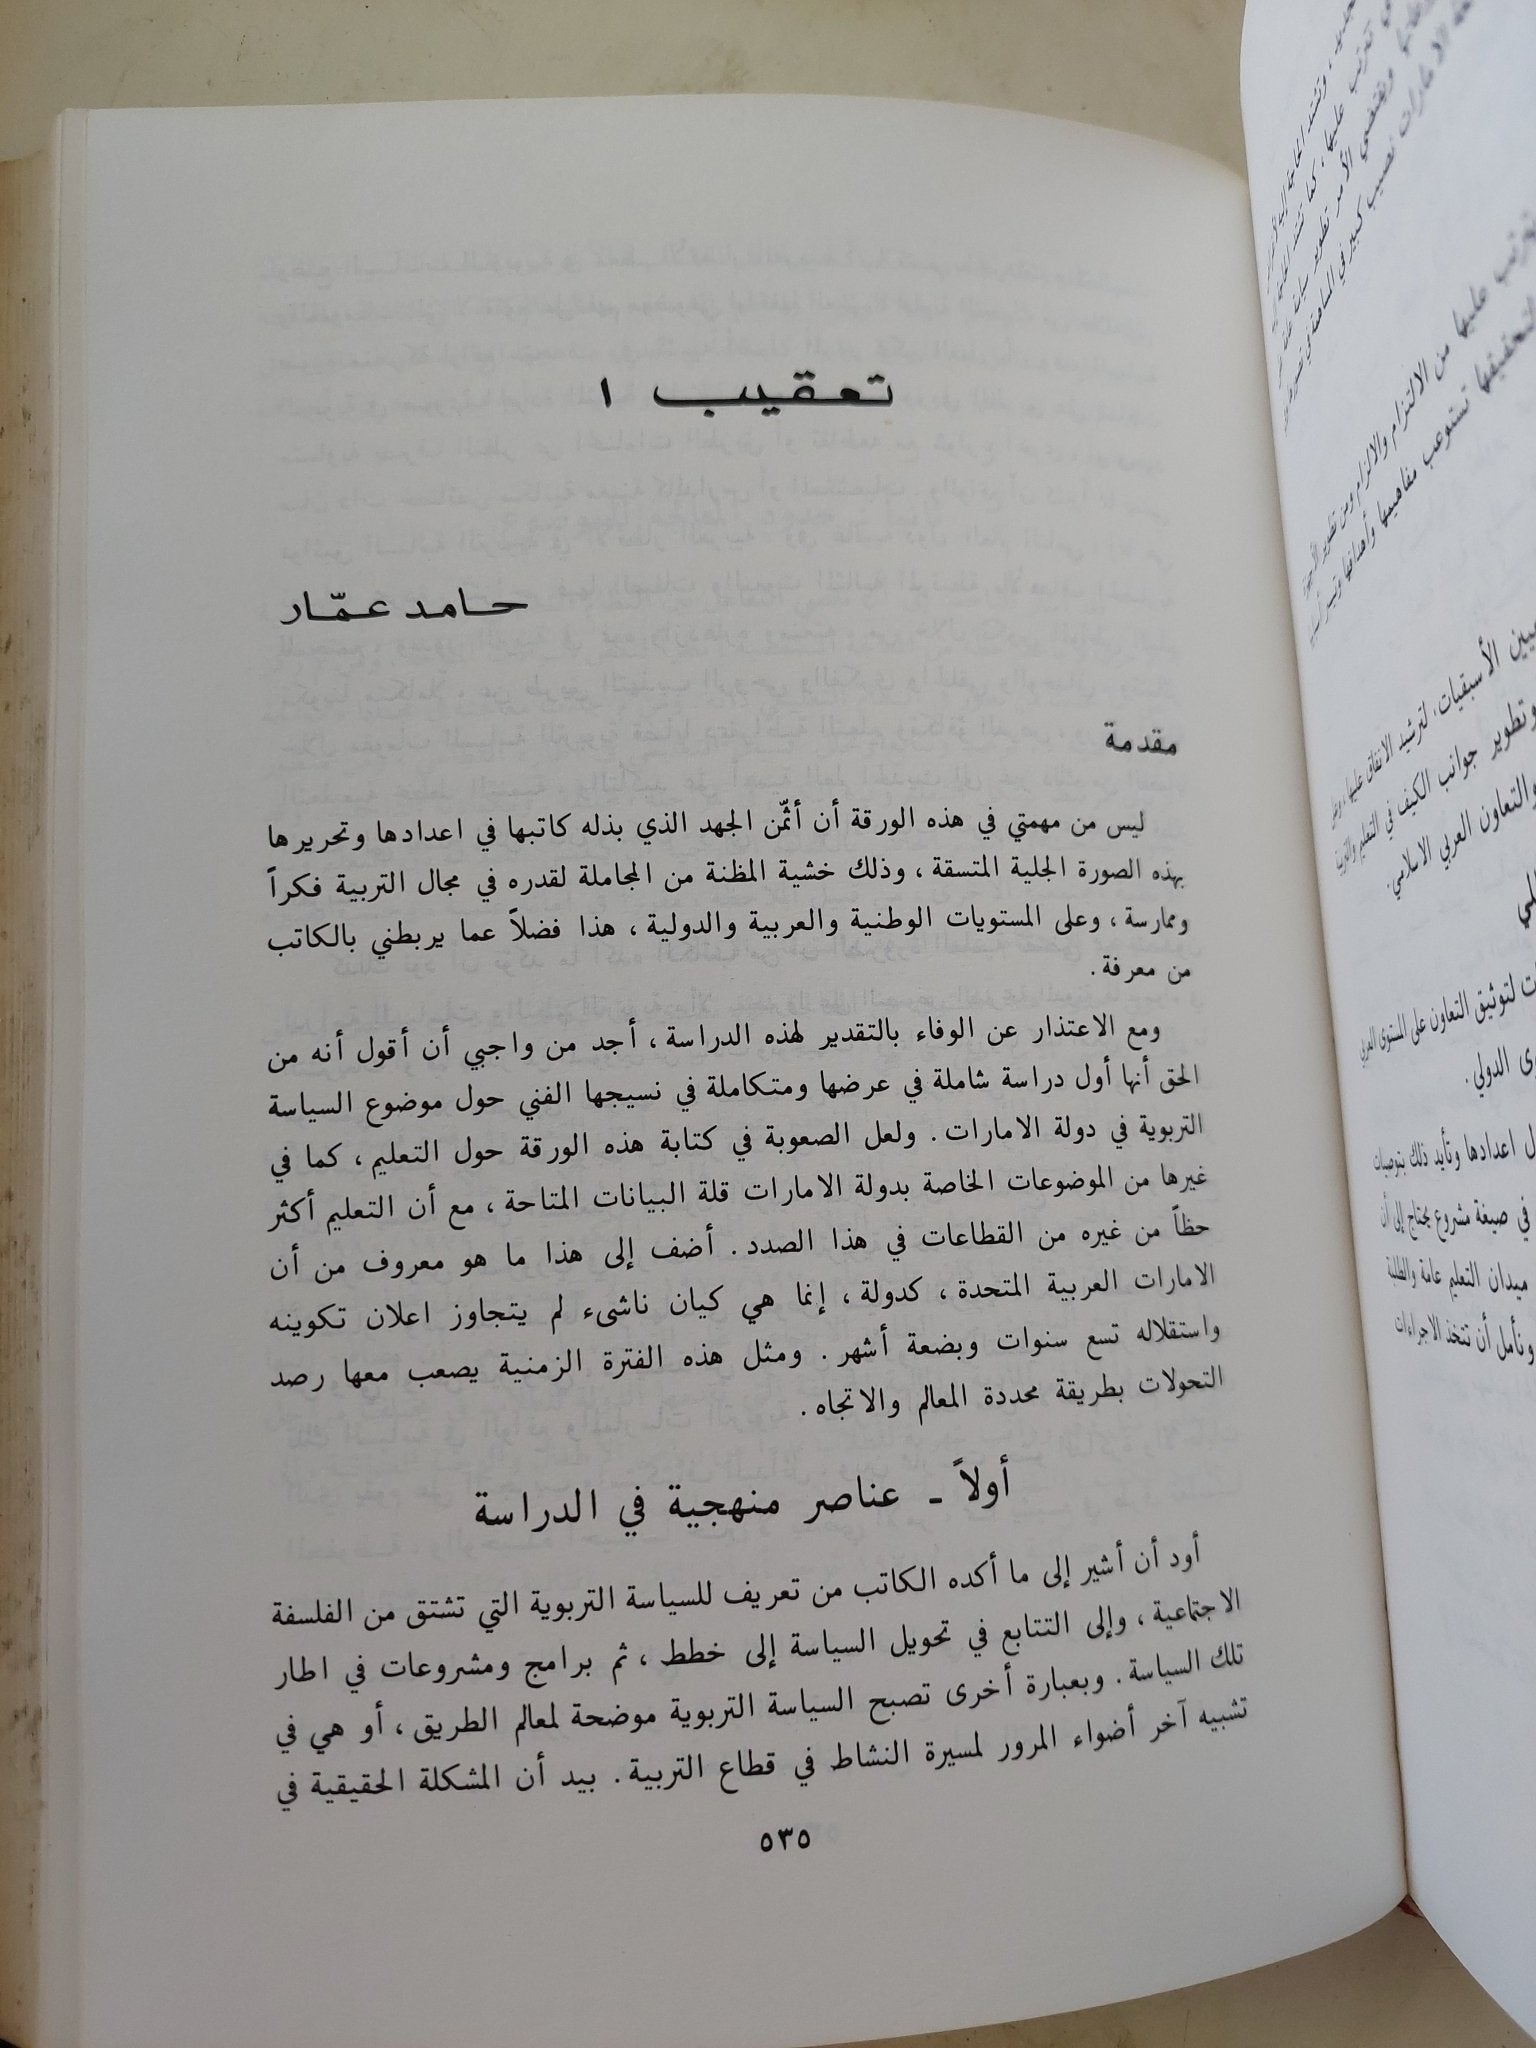 تعقيب ١
حامد عمّار
مقدمة
ليس من مهمتي في هذه الورقة أن أثمّن الجهد الذي بذله كاتبها في اعدادها وتحريرها
بهذه الصورة الجلية المتسقة ، وذلك خشية المظنة من المجاملة لقدره في مجال التربية فكراً
وممارسة ، وعلى المستويات الوطنية والعربية والدولية ، هذا فضلاً عما يربطني بالكاتب
من معرفة .
ومع الاعتذار عن الوفاء بالتقدير لهذه الدراسة ، أجد من واجبي أن أقول أنه من
الحق أنها أول دراسة شاملة في عرضها ومتكاملة في نسيجها الفني حول موضوع السياسة
التربوية في دولة الامارات . ولعل الصعوبة في كتابة هذه الورقة حول التعليم ، كما في
غيرها من الموضوعات الخاصة بدولة الامارات قلة البيانات المتاحة ، مع أن التعليم أكثر
حظاً من غيره من القطاعات في هذا الصدد . أضف إلى هذا ما هو معروف من أن
الامارات العربية المتحدة ، كدولة ، إنما هي كيان ناشىء لم يتجاوز اعلان تكوينه
واستقلاله تسع سنوات وبضعة أشهر . ومثل هذه الفترة الزمنية يصعب معها رصد
التحولات بطريقة محددة المعالم والاتجاه .
أولاً ـ عناصر منهجية في الدراسة
أود أن أشير إلى ما أكده الكاتب من تعريف للسياسة التربوية التي تشتق من الفلسفة
الاجتماعية ، وإلى التتابع في تحويل السياسة إلى خطط ، ثم برامج ومشروعات في اطار
تلك السياسة . وبعبارة أخرى تصبح السياسة التربوية موضحة لمعالم الطريق ، أو هي في
تشبيه آخر أضواء المرور لمسيرة النشاط في قطاع التربية . بيد أن المشكلة الحقيقية في
٥٣٥
ترتب عليها من الالتزام والالزام ومن تطوير
لتحقيقها تستوعب مفاهيمها وأهدافها
الأسبقيات ، لترشيد الانفاق عليها
وتطوير جوانب الكيف في التعليم والتربية
والتعاون العربي الاسلامي .
لتوثيق التعاون على المستوى العربي
الدولي .
اعدادها وتأيد ذلك بتوصيات
في صيغة مشروع يحتاج إلى أن
ميدان التعليم عامة والطلبة
ونأمل أن تتخذ الاجراءات